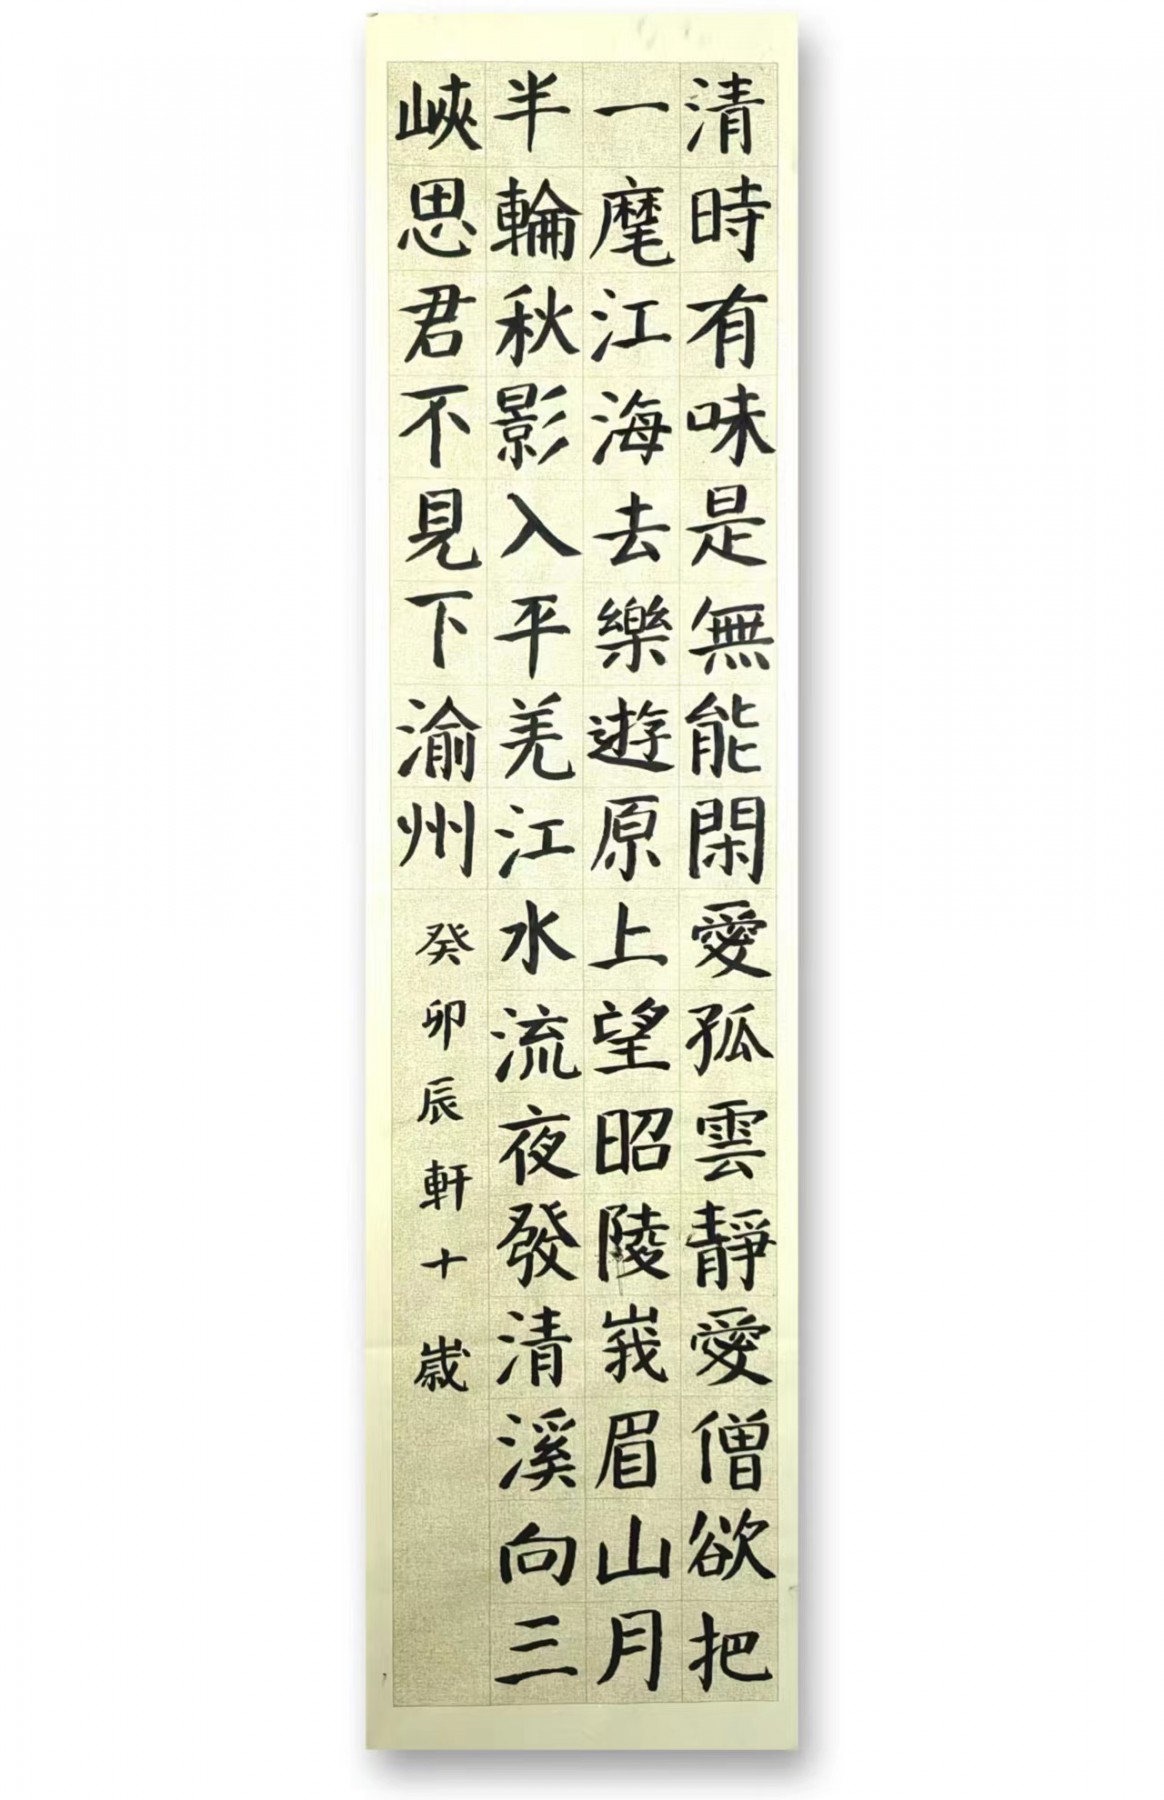 清時有味是無能閑愛孤雲靜愛僧欲把
一麾江海去樂遊原上望昭陵峩眉山月
半輪秋影入平羌江水流夜發清溪向三
峽思君不見下渝州
癸卯辰軒十歲